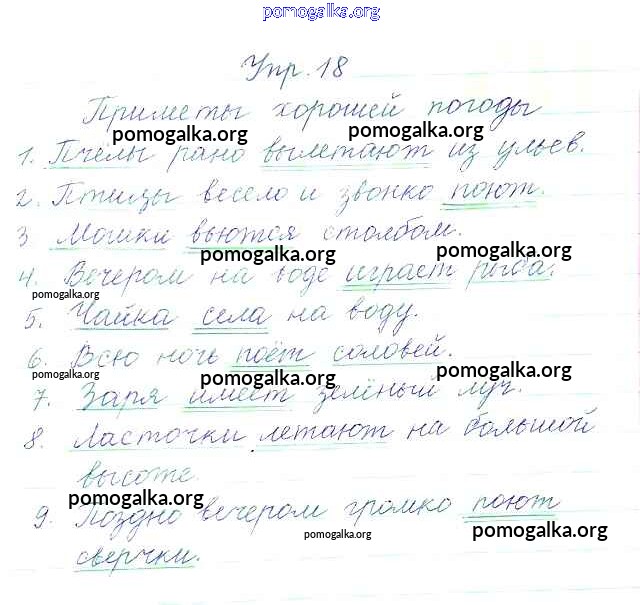 pomogalka.org
Упр. 18
Приметы хорошей погоды
pomogalka.org pomogalka.org
1. Пчёлы рано вылетают из ульев.
2. Птицы весело и звонко поют.
3 Мошки вьются столбом.
pomogalka.org pomogalka.org
4. Вечером на воде играет рыба.
pomogalka.org
5. Чайка села на воду.
6. Всю ночь поёт соловей.
pomogalka.org pomogalka.org pomogalka.org
7. Заря имеет зелёный луч.
8. Ласточки летают на большой
высоте.
pomogalka.org
9. Поздно вечером громко поют
pomogalka.org pomogalka.org
сверчки.